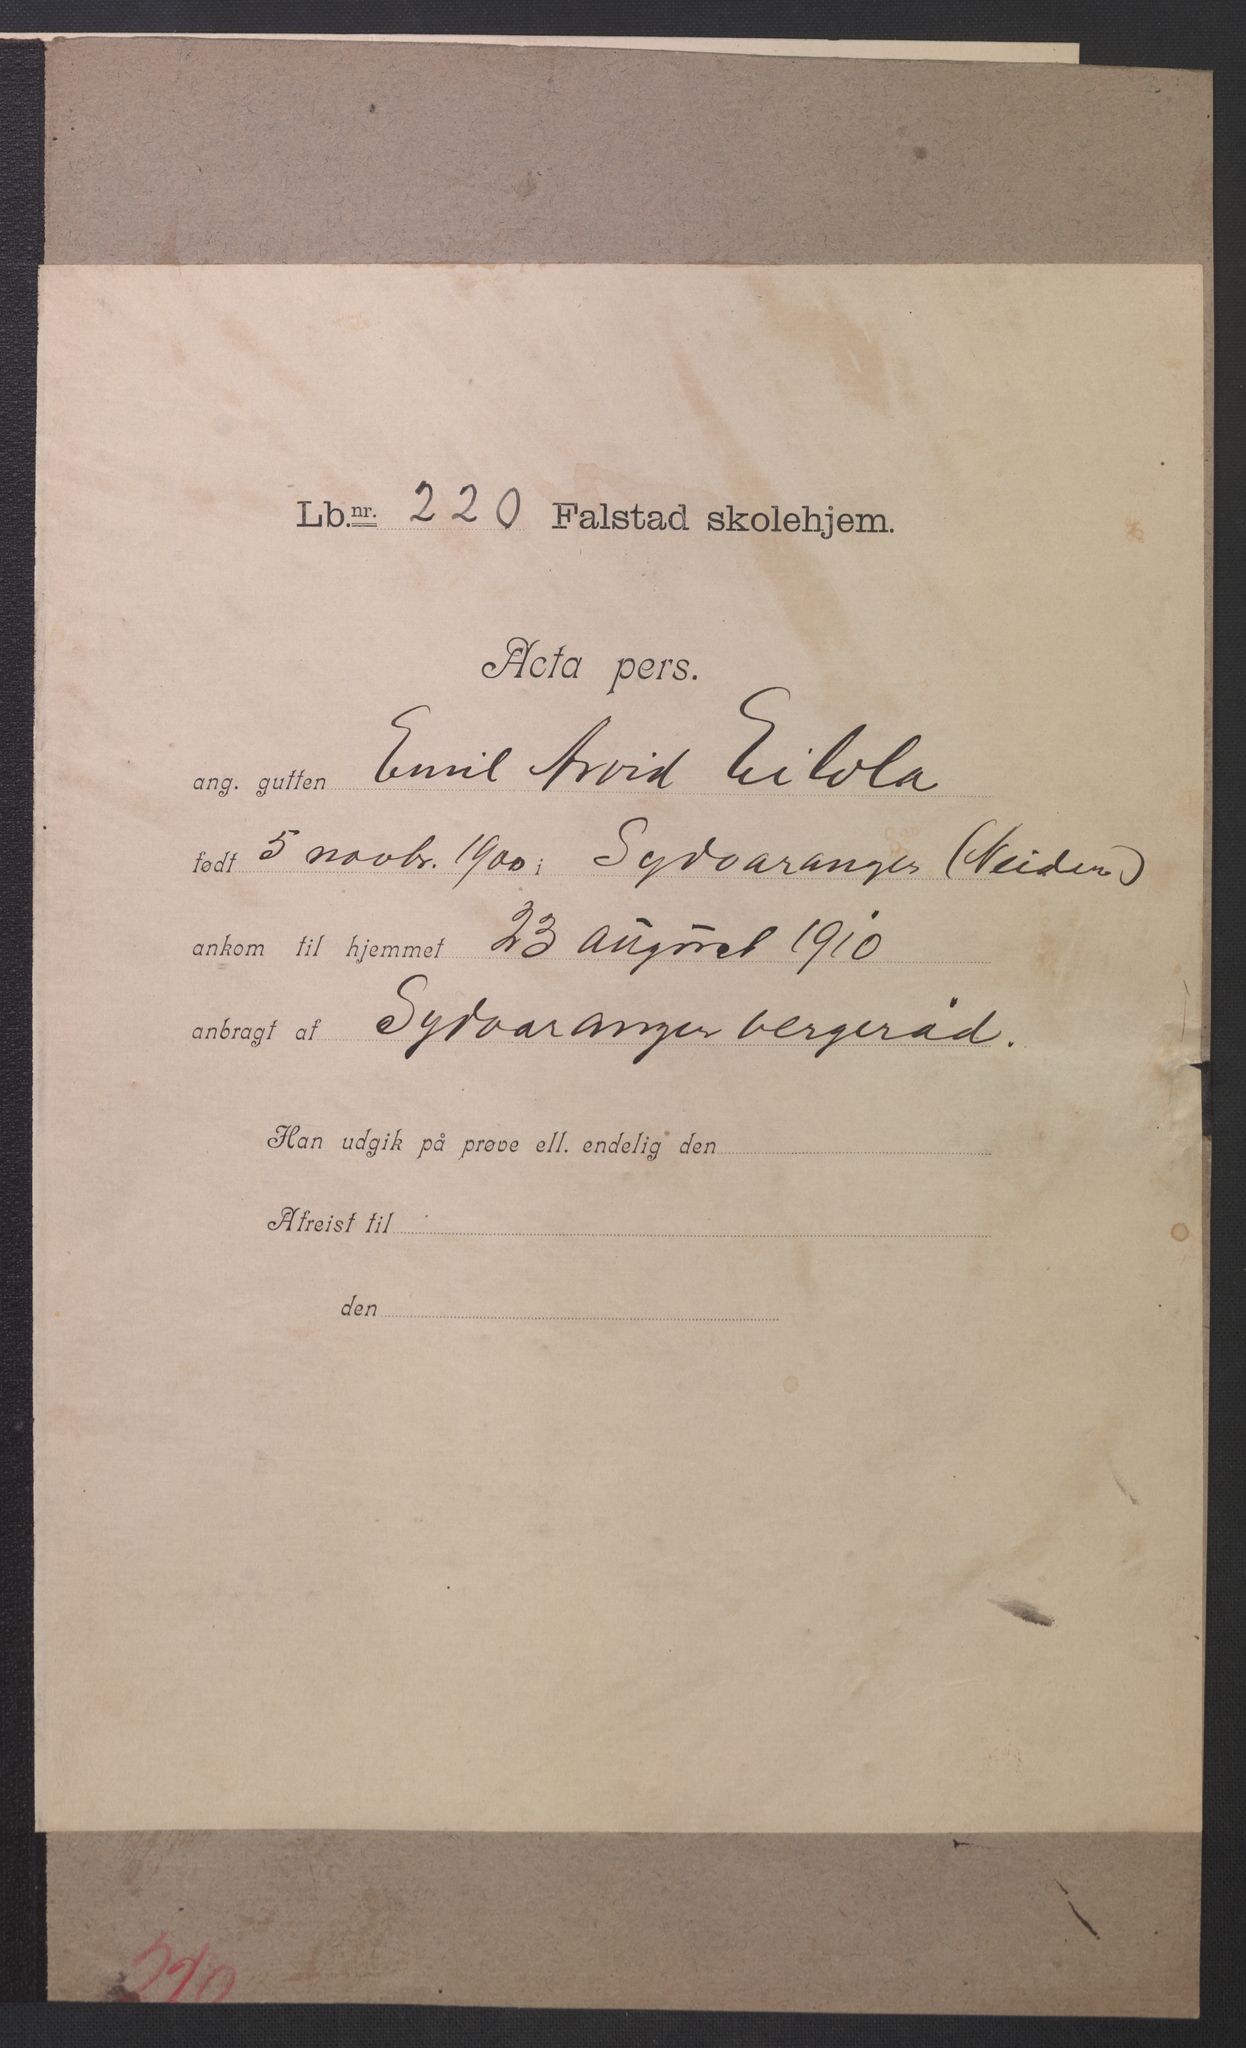 Lb.nr. 220 Falstad skolehjem.
Acta pers.
ang. gutten Emil Arvid Eilola
født 5 novbr. 1900 i Sydvaranger (Neiden)
ankom til hjemmet 23 august 1910
anbragt af Sydvaranger vergeråd.
Han udgik på prøve ell. endelig den
Afreist til
den
220